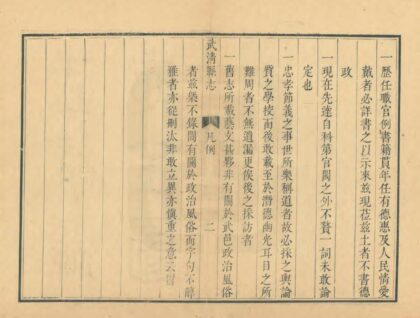 一歷任職官例書籍貫年任有德惠及人民情愛
戴者必詳書之以示來茲現莅茲土者不書德
政
一現在先達自科第官閥之外不贅一詞未敢論
定也
一忠孝節義之事世所樂稱道者故必採之輿論
質之學校而後敢載至於潛德幽光耳目之所
難周者不無遺漏更俟後之採訪者
武清縣志 凡例 二
一舊志所載藝文甚夥非有關於武邑政治風俗
者茲槩不錄間有關於政治風俗而字句不醇
雅者亦從刪汰非敢立異亦慎重之意云爾